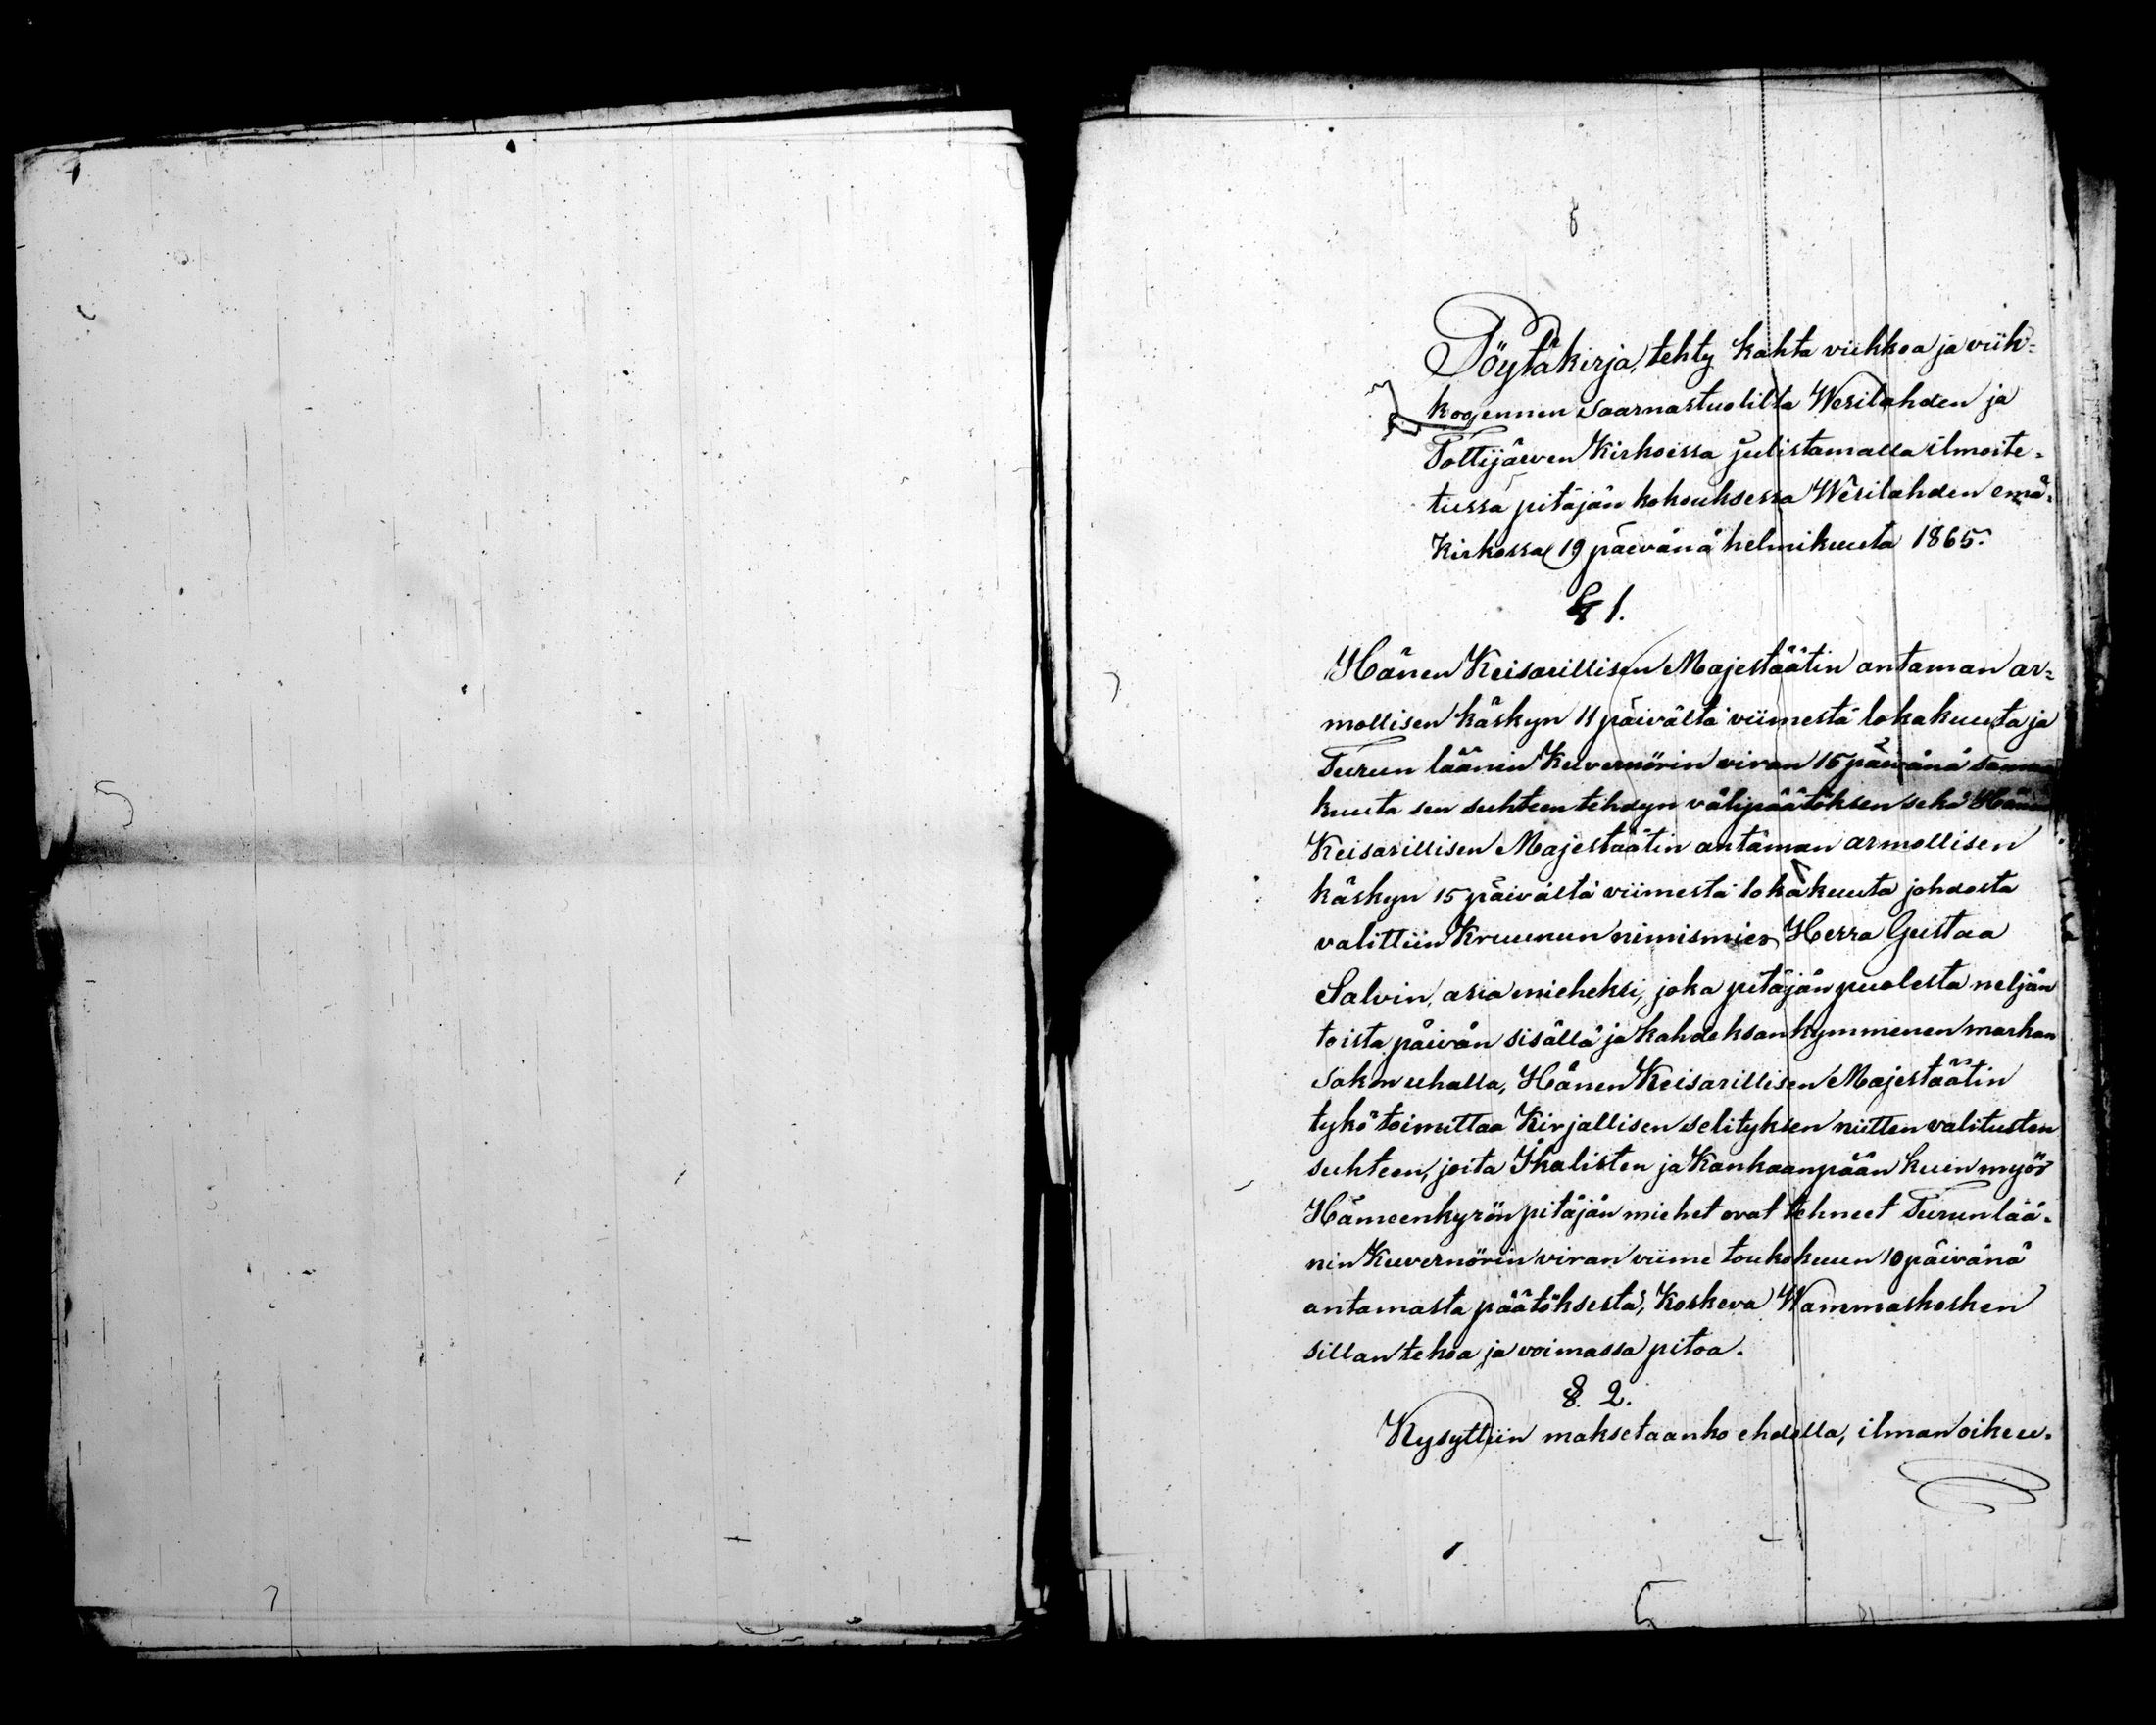 Pöytäkirja, tehty kahta viikkoa ja viik-
koa ennen saarnastuolilta Wesilahden ja
Tottijärven Kirkoissa julistamalla ilmoite-
tussa pitäjän kokouksessa Wesilahden emä-
Kirkossa 19 päivänä helmikuuta 1865.
§ 1.
Hänen Keisarillisen Majestäätin antaman ar-
mollisen käskyn 11 päivältä viimestä lokakuuta ja
Turun läänin Kuvernörin viran 15 päivänä samaa
kuuta sen suhteen tehdyn välipäätöksen sekä Hänen
Keisarillisen Majestäätin antaman armollisen
käskyn 15 päivältä viimestä lokakuuta johdosta
valittiin Kruunun nimismies, Herra Gustaa
Salvin, asia mieheksi, joka pitäjän puolesta neljän
toista päivän sisällä ja kahdeksankymmenen markan
sakon uhalla, Hänen Keisarillisen Majestäätin
tykö toimittaa Kirjallisen selityksen niitten valitusten
suhteen, joita Ikalisten ja Kankaanpään kuin myös
Hämeenkyrön pitäjän miehet ovat tehneet Turun lää-
nin Kuvernörin viran viime toukokuun 10 päivänä
antamasta päätöksestä, Koskeva Wammaskosken
sillan tekoa ja voimassa pitoa.
§. 2.
Kysyttiin maksetaanko ehdolla, ilman oikeu-